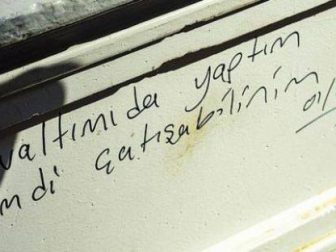 valtımıda yaptım
mdi çatışabilirim